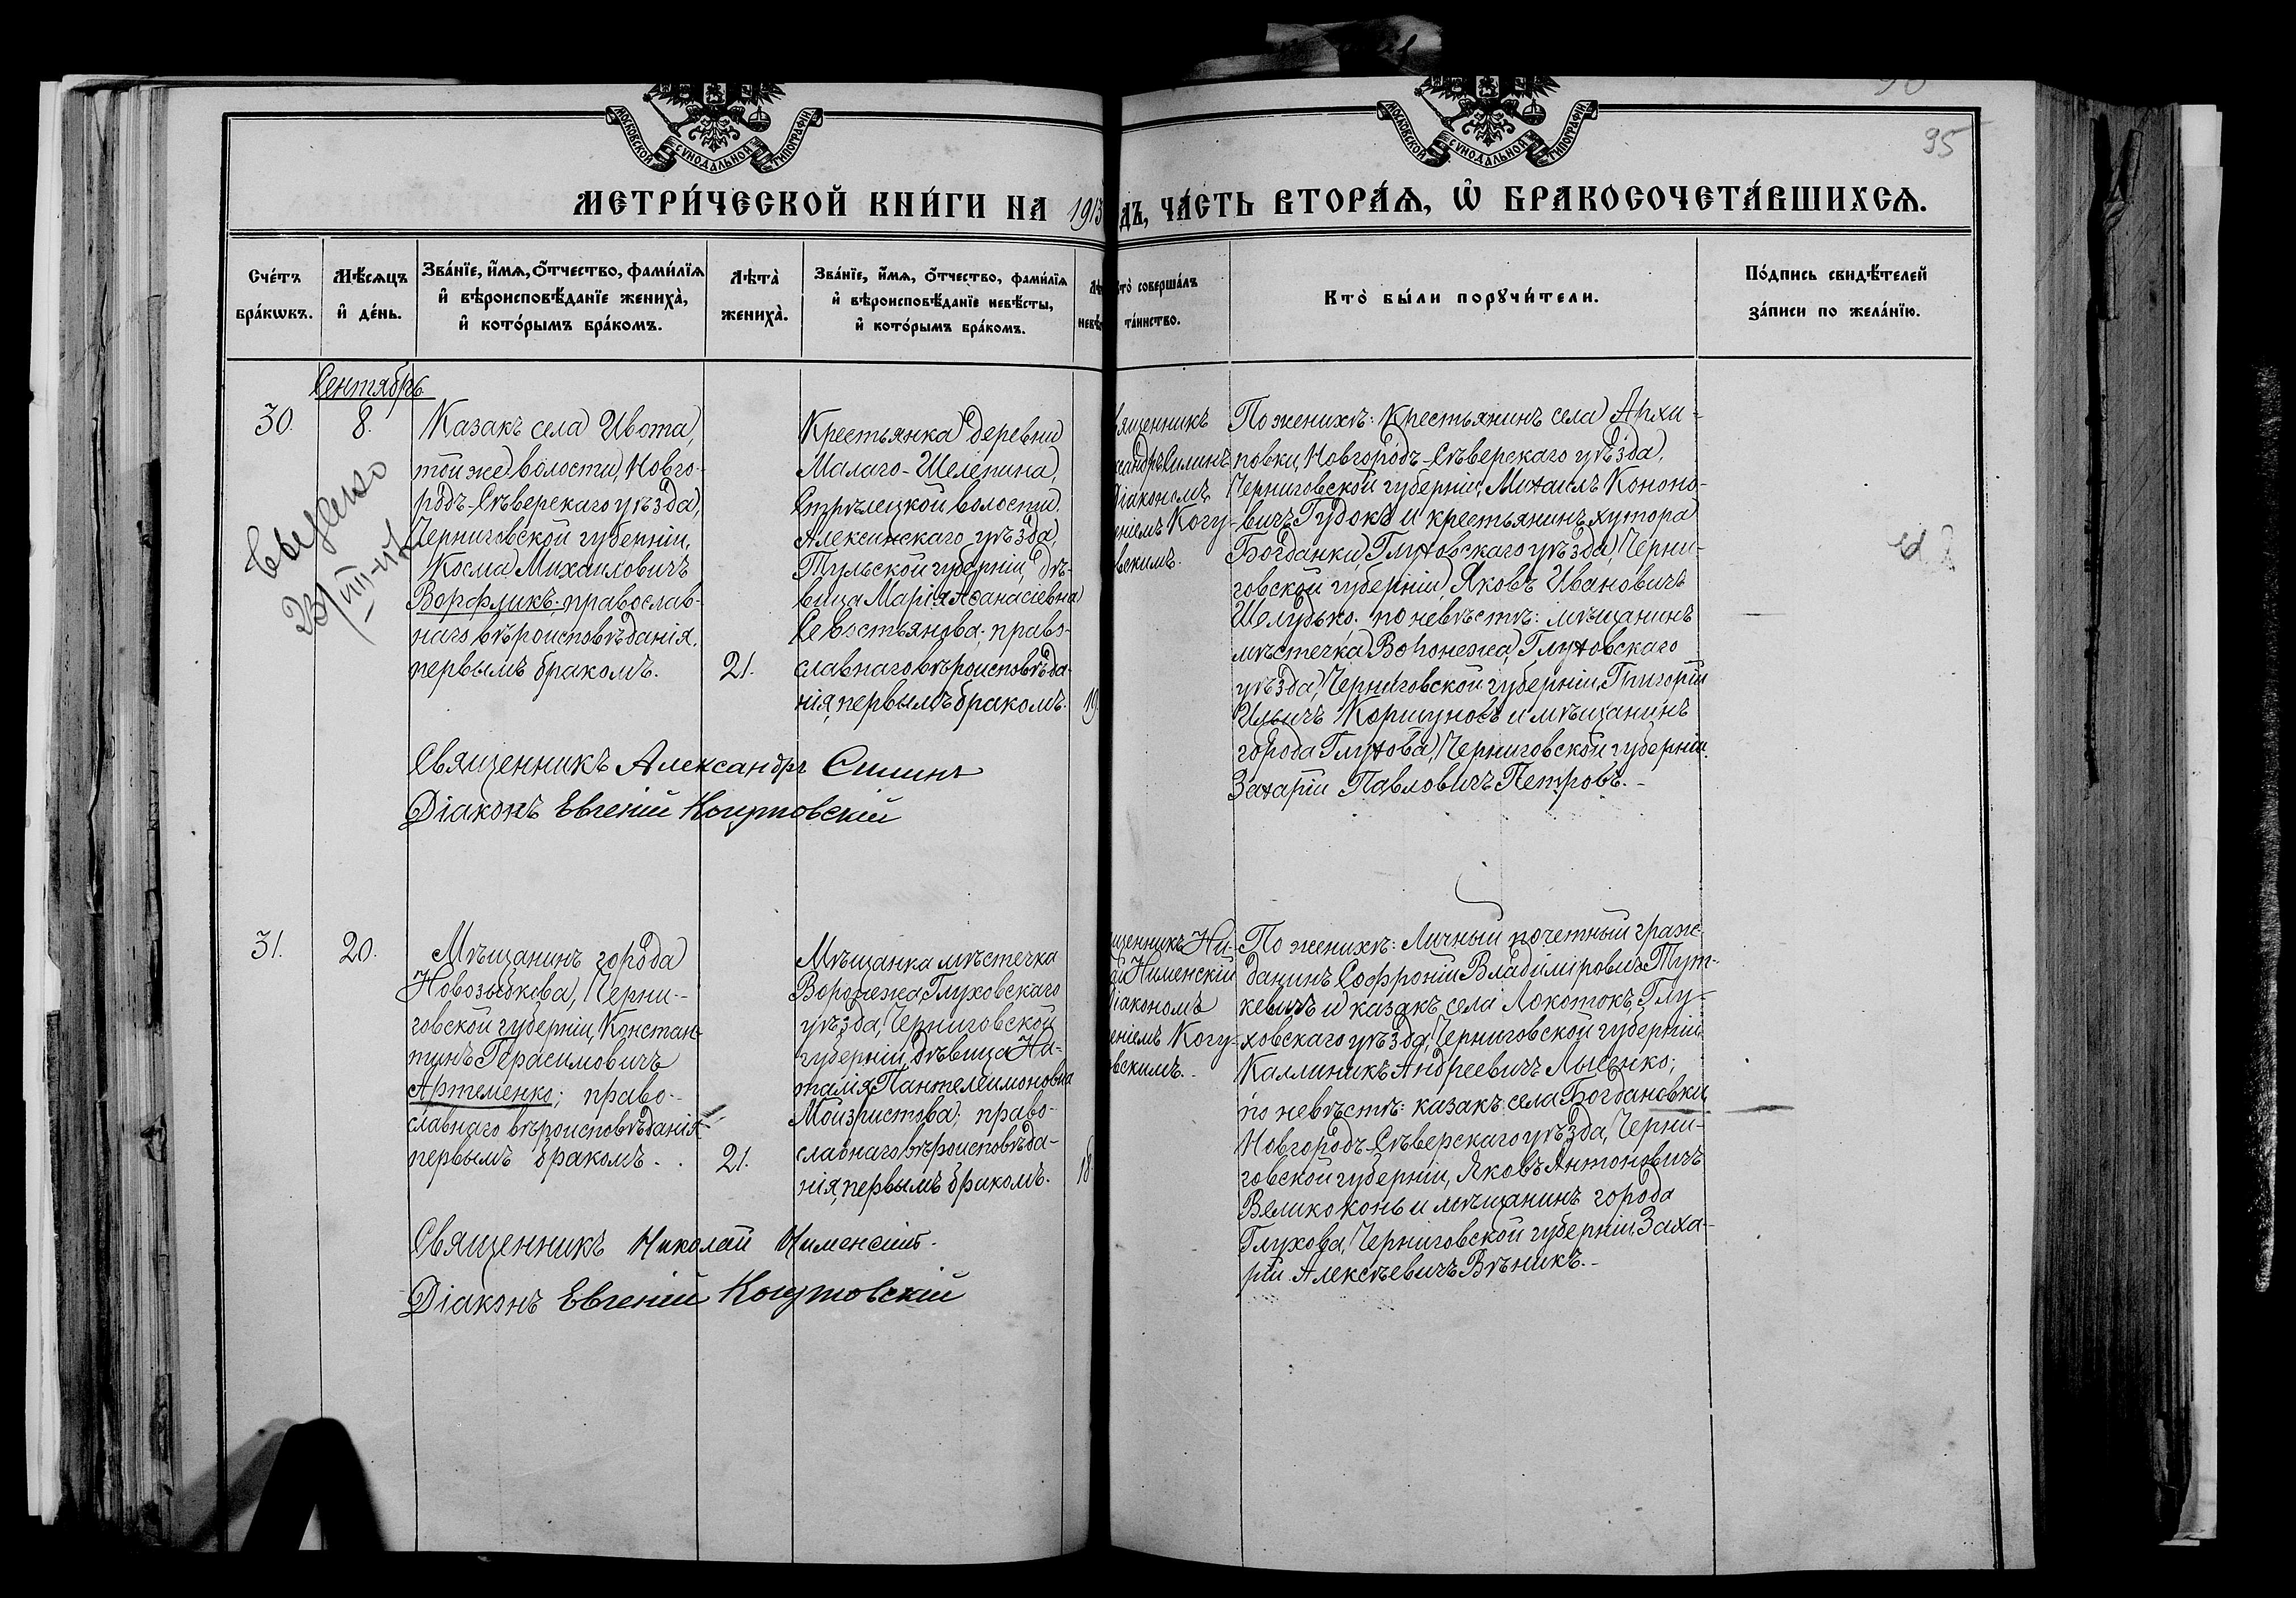 95
МОСКОВСКОЙ СѴНОДАЛЬНОЙ ТИПОГРАФІИ
МОСКОВСКОЙ СѴНОДАЛЬНОЙ ТИПОГРАФІИ
МЕТРИ́ЧЕСКОЙ КНИ́ГИ НА 1913
ДЪ, ЧА́СТЬ ВТОРА́Ѧ, Ѽ БРАКОСОЧЕТА́ВШИХСѦ.
Сче́тъ
бра́кѡвъ.
Мѣ́сѧцъ
и҆ де́нь.
Зва́нїе, и҆́мѧ, ѻ҆́тчество, фами́лїѧ
и҆ вѣроисповѣ́данїе жениха̀,
и҆ кото́рымъ бра́комъ.
Лѣта̀
жениха̀.
Зва́нїе, и҆́мѧ, ѻ҆́тчество, фами́лїѧ
и҆ вѣроисповѣ́данїе невѣ́сты,
и҆ кото́рымъ бра́комъ.
Кто̀ соверша́лъ
та́инство.
Кто̀ бы́ли порꙋчи́тели.
По́дпись свидѣ́телей
за́писи по жела́нїю.
Сентябрь
30.
8.
Казакъ села Ивота,
той же волости, Новго-
родъ-Сѣверскаго уѣзда,
Черниговской губерніи,
Косма Михаиловичъ
Ворфликъ. православ-
наго вѣроисповѣданія.
первымъ бракомъ.
21.
Крестьянка деревни
Малаго-Шелепина,
Стрѣлецкой волости.
Алексинскаго уѣзда,
Тульской губерніи, дѣ-
вица Марія Аѳанасіевна
Севостьянова. право-
славнаго вѣроисповѣда-
нія, первымъ бракомъ.
19.
вященникъ
ксандръ Силинъ
діакономъ
еніемъ Когу-
вскимъ.
По женихѣ: Крестьянинъ села Архи-
повки, Новгородъ-Сѣверскаго уѣзда,
Черниговской губерніи, Михаилъ Кононо-
вичъ Гудокъ и крестьянинъ хутора
Богданки, Глуховскаго уѣзда, Черни-
говской губерніи, Яковъ Ивановичъ
Шелудько. по невѣстѣ: мѣщанинъ
мѣстечка Воронежа, Глуховскаго
уѣзда, Черниговской губерніи, Григорій
Ильичъ Коршуновъ и мѣщанинъ
города Глухова, Черниговской губерніи.
Захарій Павловичъ Петровъ.-
Священникъ Александръ Силинъ
Діаконъ Евгеній Когутовскій
31.
20.
Мѣщанинъ города
Новозыбкова, Черни-
говской губерніи, Констан-
тинъ Герасимовичъ
Артеменко; право-
славнаго вѣроисповѣданія
первымъ бракомъ.
21.
Мѣщанка мѣстечка
Воронежа, Глуховскаго
уѣзда, Черниговской
губерніи, дѣвица На-
талія Пантелеимоновна
право-
славнаго вѣроисповѣда-
нія, первымъ бракомъ.
18.
щенникъ Ни-
діакономъ
еніемъ Когу-
вскимъ.
По женихѣ: Личный почетный граж-
данинъ Софроній Владиміровичъ Тут-
кевичъ и казакъ села Локотокъ, Глу-
ховскаго уѣзда, Черниговской губерніи
Каллиникъ Андреевичъ Лысенко;
по невѣстѣ: казакъ села Богдановки,
Новгородъ-Сѣверскаго уѣзда, Черни-
говской губерніи, Яковъ Антоновичъ
Великоконь и мѣщанинъ города
Глухова, Черниговской губерніи, Заха-
рій Алексѣевичъ Вѣникъ.-
Священникъ Николай
Діаконъ Евгеній Когутовскій